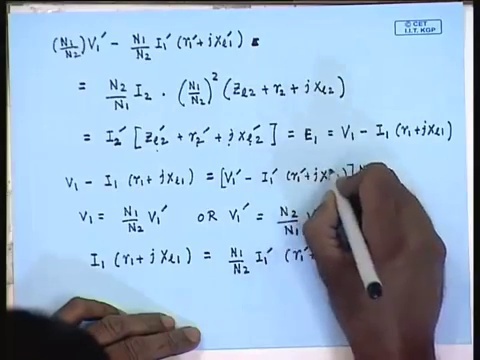 © CET
I.I.T. KGP
(N1/N2) V1′ − N1/N2 I1′ (r1′ + j x_l1′)
= N2/N1 I2 · (N1/N2)² (Z_l2 + r2 + j x_l2)
= I2′ [Z_l2′ + r2′ + j x_l2′] = E1 = V1 − I1 (r1 + j x_l1)
V1 − I1 (r1 + j x_l1) = [V1′ − I1′ (r1′ + j x
V1 = N1/N2 V1′ OR V1′ = N2/N1
I1 (r1 + j x_l1) = N1/N2 I1′ (r1′ +